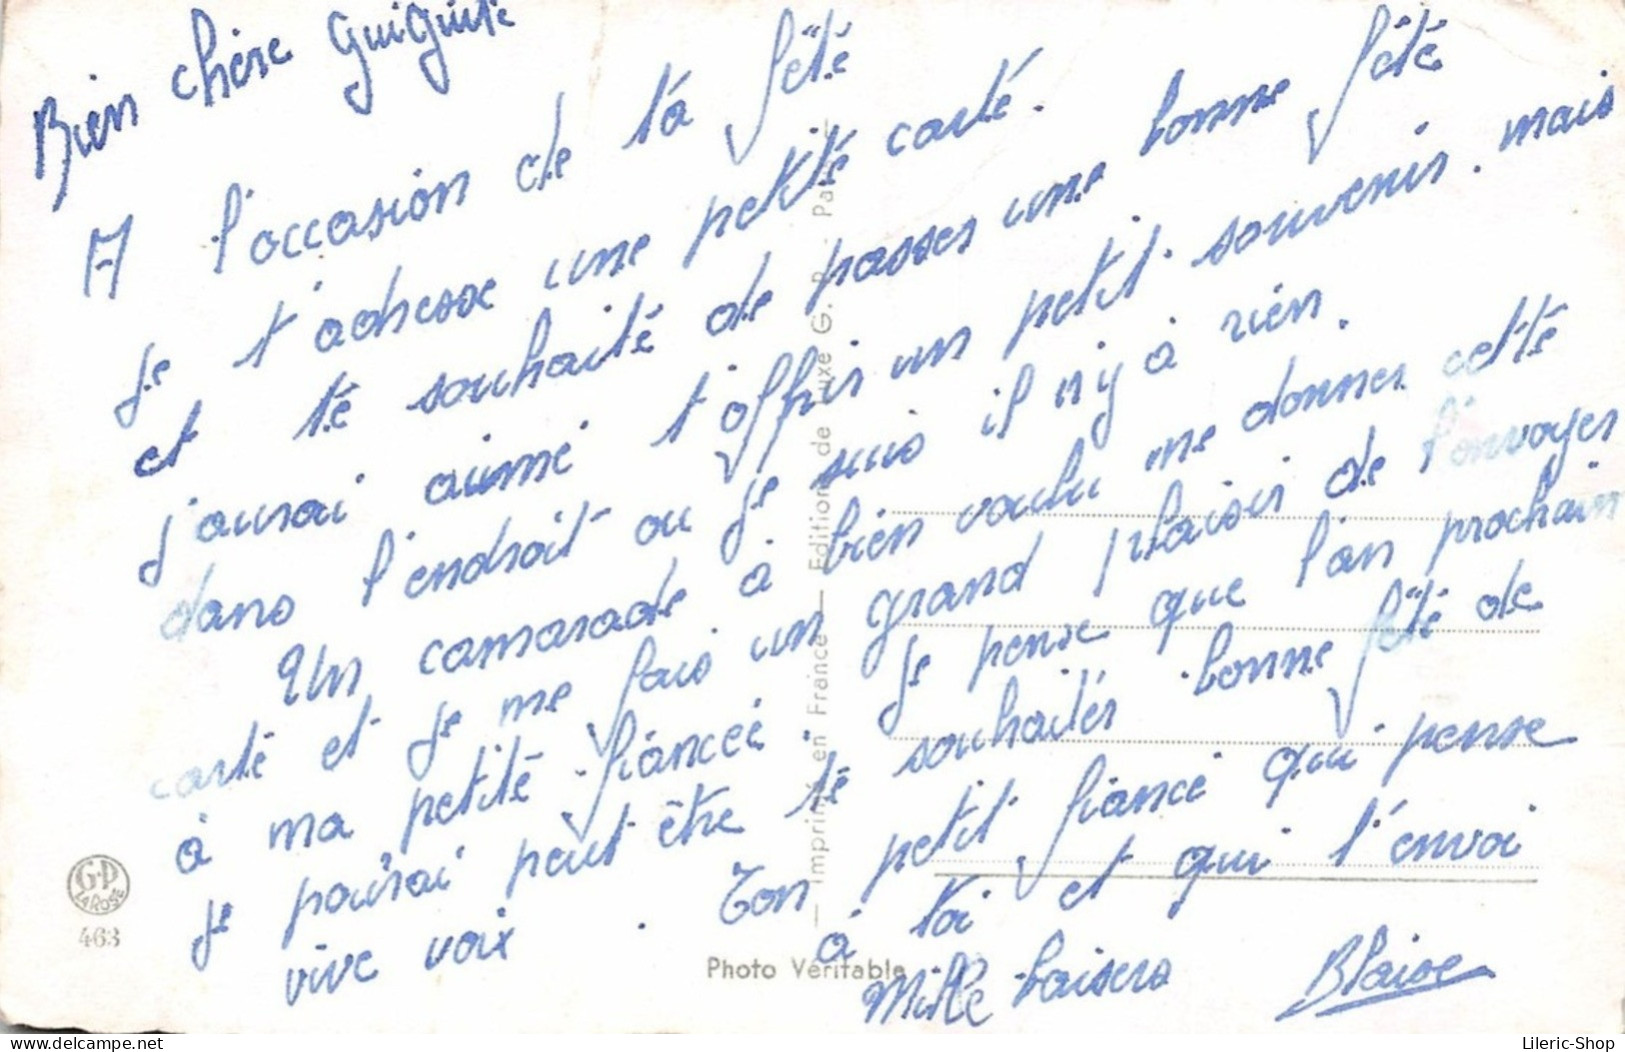 Bien chère Guiguite
A l'occasion de ta fête
je t'adresse une petite carte.
et te souhaite de passer une bonne fête
j'aurai aimé t'offrir un petit souvenir. mais
dans l'endroit ou je suis il n'y à rien.
Un camarade à bien voulu me donner cette
carte et je me fais un grand plaisir de l'envoyer
à ma petite fiancée. je pense que l'an prochain
je pourrai peut être te souhaiter bonne fête de
vive voix. Ton petit fiancé qui pense
à toi et qui t'envoi
Mille baisers Blaise
Imprimé en France — Edition de Luxe G. P. Paris
G.P
LA ROSE
463
Photo Véritable
Lileric-Shop